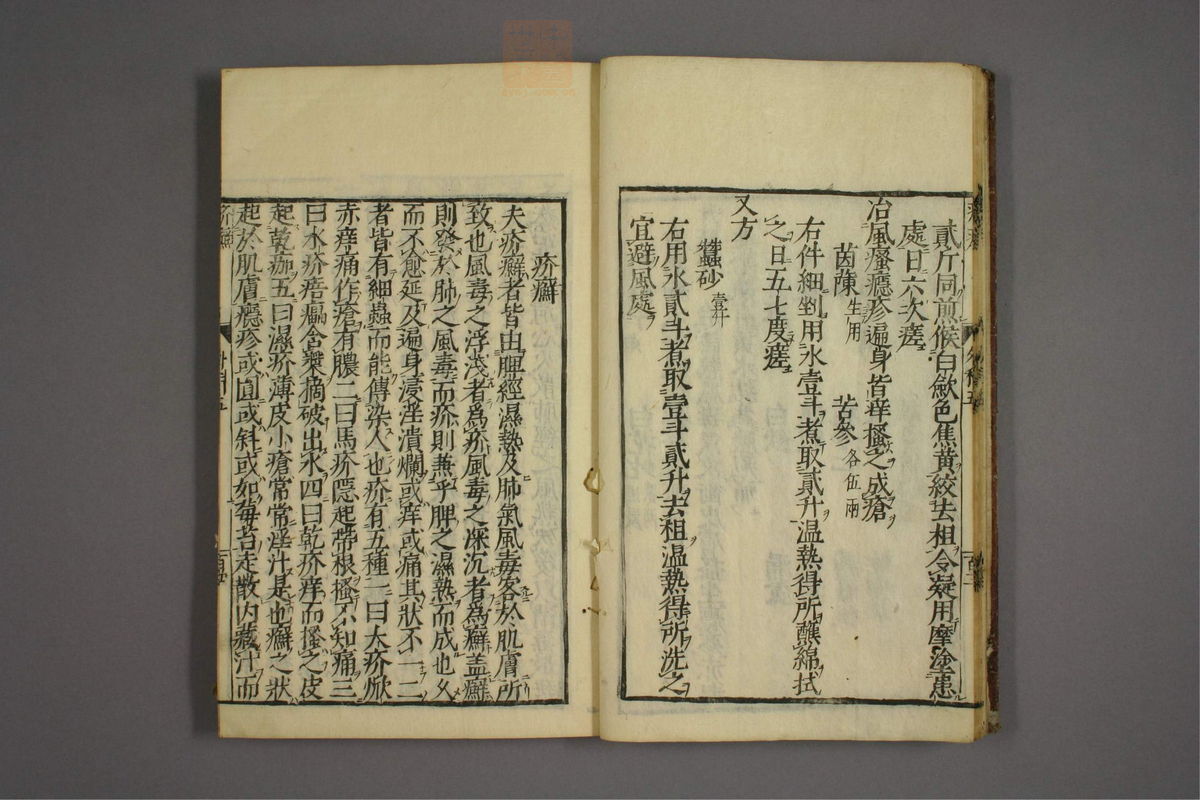 貳斤同煎候白歛色焦黄絞去柤令凝用摩塗患
處日六次瘥
治風瘙癮疹遍身皆痒搔之成瘡
茵蔯生用 苦參各伍兩
右件細剉用水壹斗煮取貳升温熱得所蘸綿拭
之日五七度瘥
又方
蠶砂壹升
右用水貳斗煮取壹斗貳升去柤温熱得所洗之
宜避風處
疥癬
夫疥癬者皆由脾經濕熱及肺氣風毒客於肌膚所
致也風毒之浮淺者爲疥風毒之深沉者爲癬盖癬
則發於肺之風毒而疥則兼乎脾之濕熱而成也久
而不愈延及遍身浸淫潰爛或痒或痛其狀不一二
者皆有細蟲而能傳染人也疥有五種一曰大疥焮
赤痒痛作瘡有膿二曰馬疥隱起帶根搔不知痛三
曰水疥㾦㿔含漿摘破出水四曰乾疥痒而搔之皮
起乾痂五曰濕疥薄皮小瘡常常淫汁是也癬之狀
起於肌膚癮疹或圓或斜或如莓苔走散内藏汁而